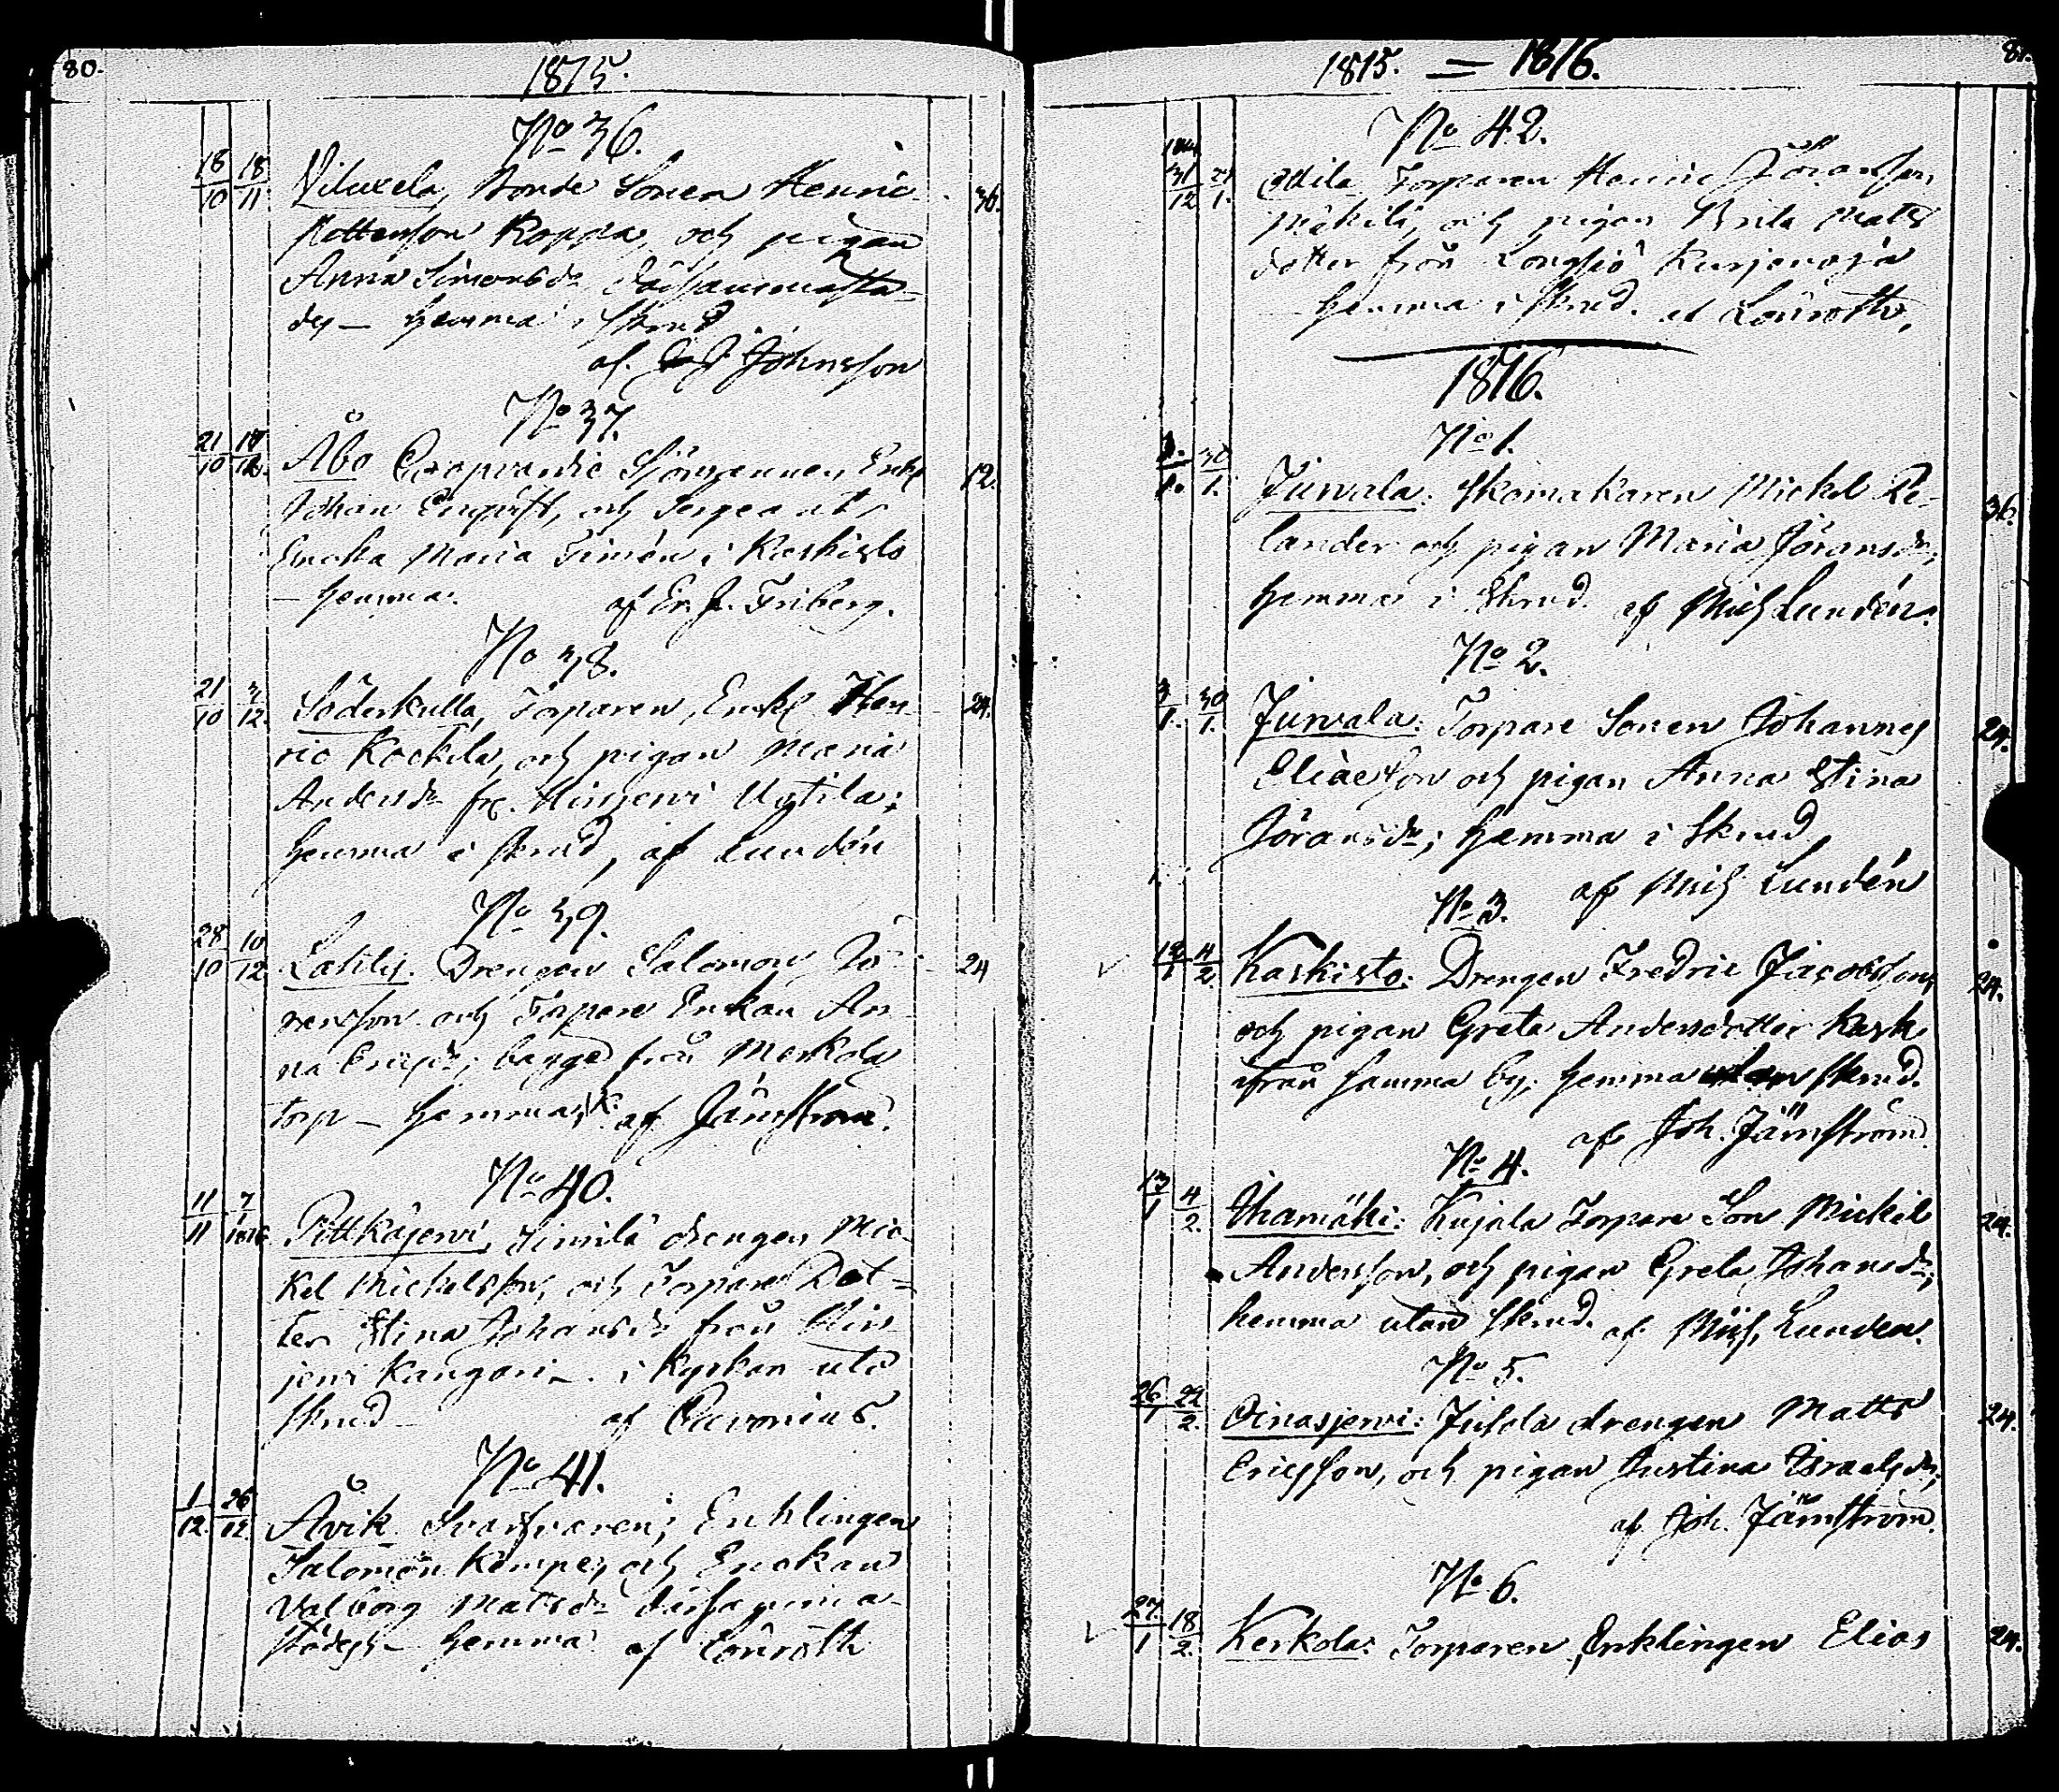 80.
1815.
No 36.
18/10 18/11 Viluxela, Bonde Sonen Henric 36.
Mattensson Koppa, och pigan
Anna Simonsdr därsammasta-
des - hemma i skrud
af. J. Johnsson
No 37.
21/10 Åbo Sjömannen, Enkl 12.
Johan Engqvist, och Sergeants
Encka Maria Timén i Kaskisto
- hemma. af Er. J. Friberg.
No 38.
21/10 3/12. Söderkulla, Torparen, Enkl Hen- 24.
ric Kockila, och pigan Maria
Andersdr fr. Hirjervi Uytila;
hemma i skrud, af Lundén
No 39.
28/10 10/12 Lahly. Drengen Salomon Jö- 24
ransson och Torpare Enkan An-
na Ericsdr; bägge från Merkola
torp - hemma, af Järnström.
No 40.
11/11 7/1 1816 Pittkäjerwi, Simila drengen Mic-
kel Mickelsson, och Torpare Dot-
ter Stina Johansdr från Hir-
jerwi Kangari - i Kyrkan uti
skrud - af Pavonius.
No 41.
1/12. 26/12. Åvik Svarfvaren; Enklingen
Salomon Kempe, och Enckan
Valborg Matsdr därsamma-
städes - hemma af Lönroth
81.
1815. = 1816.
No 42.
31/12 21/1. Attila Torparen Henric Göransson
Mäkilä, och pigan Brita Matts
dotter från Långsjö Kurjenoja
hemma i skrud. af Lönroth,
1816.
No 1.
1/1. 30/1. Jurvala: Skomakaren Mickel Re- 36.
lander och pigan Maria Göransdr,
hemma i Skrud. af Mich Lundén.
No 2.
3/1. 30/1. Jurvala: Torpare Sonen Johannes 24.
Eliaeson och pigan Anna Stina
Göransdr; hemma i Skrud,
af Mich Lundén
No 3.
12/1 4/2. Kaskisto: Drengen Fredric Jacobsson, 24.
och pigan Greta Andersdotter Kask
från samma by. hemma utan skrud.
af Joh. Järnström.
No 4.
13/1 4/2. Ihamäki: Kujala Torpare Son Mickel 24.
Andersson, och pigan Greta Johansdr,
hemma utan skrud. af Mich. Lunden.
No 5.
26/1 22/2. Oinasjerwi: Jusola drengen Matts 24.
Ericsson, och pigan Justina Israelsdr,
af Joh. Järnström.
No 6.
27/1 18/2. Kerkola: Torparen Enklingen Elias 24.